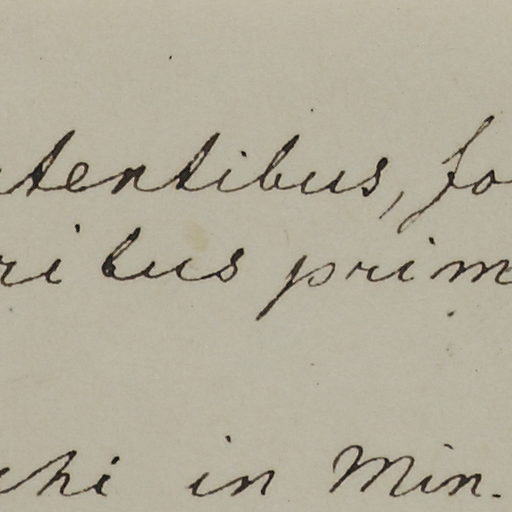 tentibus, fo
ribus prim
chi in Min.